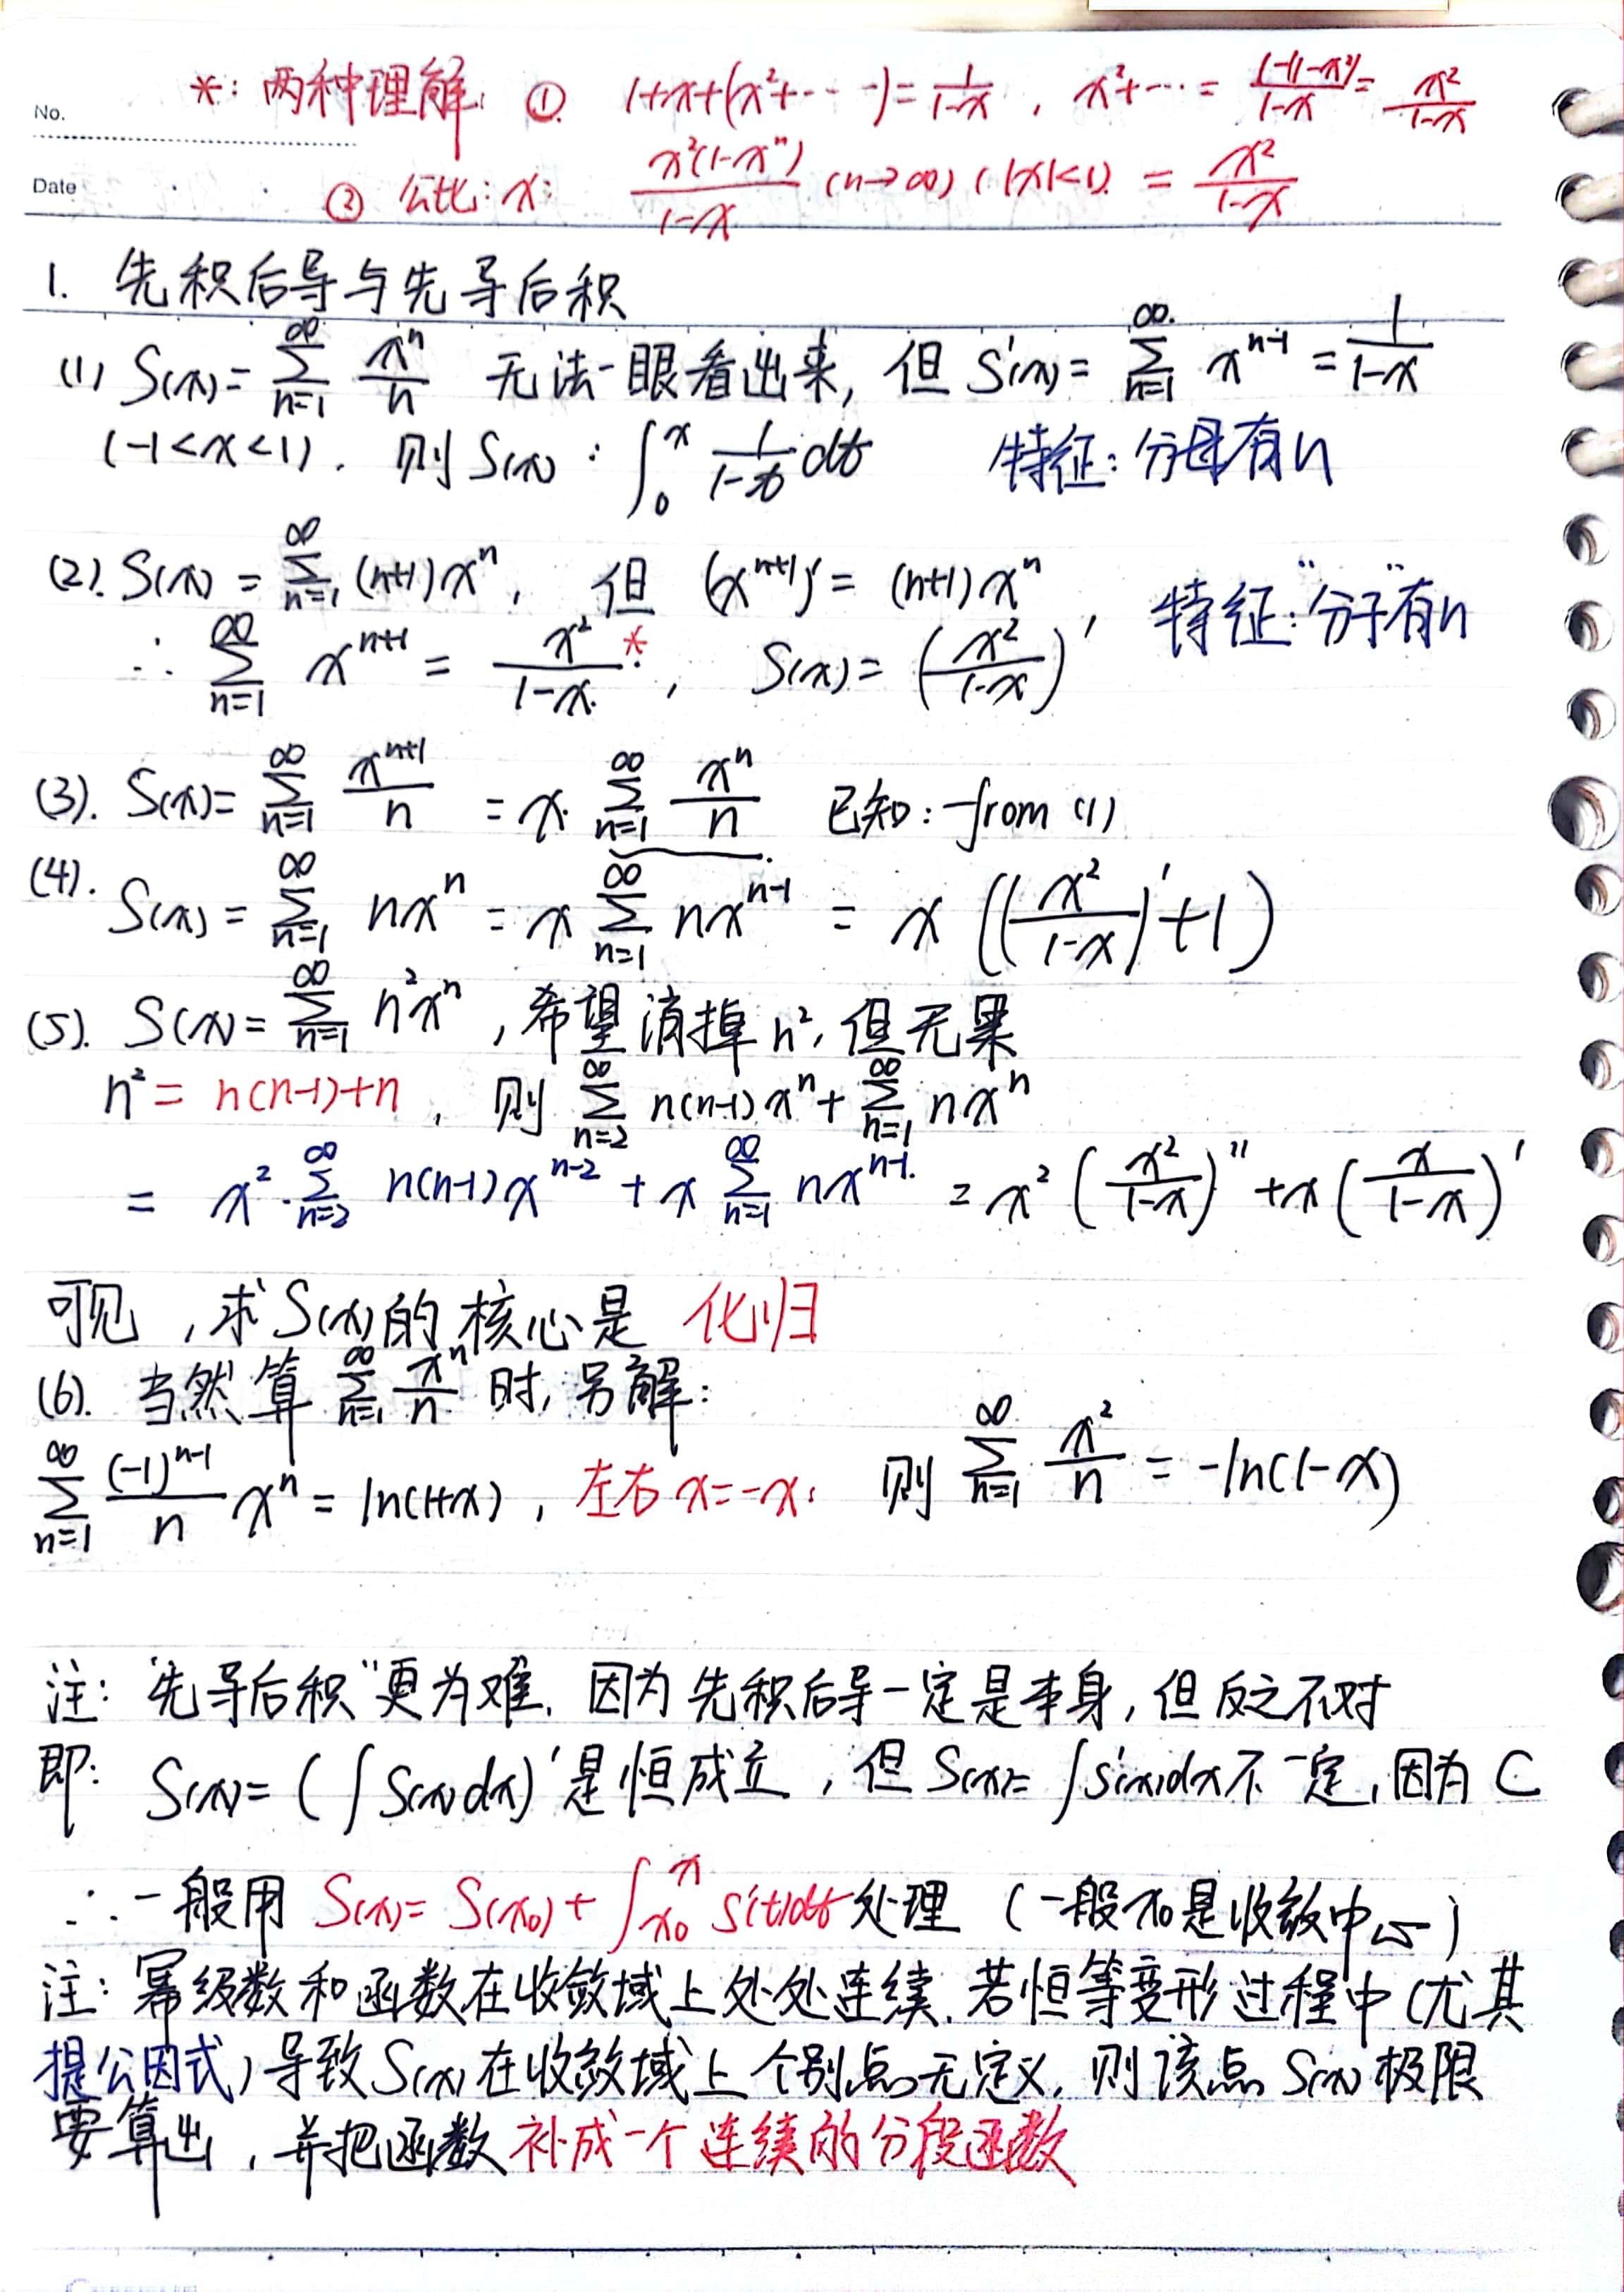 No.
Date
*: 两种理解: ① 1+x+(x²+⋯⋯)=1/(1-x), x²+⋯=(1-(1-x²))/(1-x)=x²/(1-x)
② 公比: x: x²(1-xⁿ)/(1-x) (n→∞) (|x|<1) = x²/(1-x)
1. 先积后导与先导后积
(1) S(x)=∑_{n=1}^{∞} xⁿ/n 无法一眼看出来, 但 S'(x)=∑_{n=1}^{∞} x^{n-1}=1/(1-x)
(-1<x<1). 则 S(x): ∫_0^x 1/(1-t) dt 特征: 分母有n
(2). S(x)=∑_{n=1}^{∞} (n+1)xⁿ, 但 (x^{n+1})'=(n+1)xⁿ, 特征:"分子"有n
∴ ∑_{n=1}^{∞} x^{n+1}=x²/(1-x)*, S(x)=(x²/(1-x))'
(3). S(x)=∑_{n=1}^{∞} x^{n+1}/n = x·∑_{n=1}^{∞} xⁿ/n 已知: from (1)
(4). S(x)=∑_{n=1}^{∞} nxⁿ = x∑_{n=1}^{∞} nx^{n-1} = x((x²/(1-x))'+1)
(5). S(x)=∑_{n=1}^{∞} n²xⁿ, 希望消掉n², 但无果
n²=n(n-1)+n, 则 ∑_{n=2}^{∞} n(n-1)xⁿ+∑_{n=1}^{∞} nxⁿ
= x²·∑_{n=2}^{∞} n(n-1)x^{n-2}+x∑_{n=1}^{∞} nx^{n-1} = x²(x²/(1-x))''+x(x/(1-x))'
可见, 求S(x)的核心是 化归
(6). 当然算 ∑_{n=1}^{∞} xⁿ/n 时, 另解:
∑_{n=1}^{∞} (-1)^{n-1}/n xⁿ=ln(1+x), 左右x=-x: 则 ∑_{n=1}^{∞} x²/n=-ln(1-x)
注: "先导后积"更为难. 因为先积后导一定是本身, 但反之不对
即: S(x)=(∫S(x)dx)'是恒成立, 但S(x)=∫S'(x)dx不一定, 因为C
∴一般用 S(x)=S(x₀)+∫_{x₀}^x S'(t)dt 处理 (一般x₀是收敛中心)
注: 幂级数和函数在收敛域上处处连续. 若恒等变形过程中(尤其
提公因式)导致S(x)在收敛域上个别点无定义, 则该点S(x)极限
要算出, 并把函数补成一个连续的分段函数